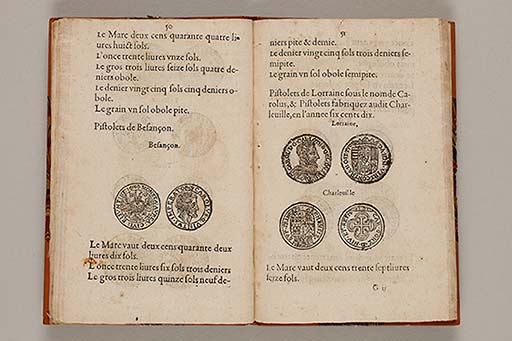 50
Le Marc deux cens quarante quatre li-
ures huict sols.
L'once trente liures vnze sols.
Le gros trois liures seize sols quatre de-
niers obole.
Le denier vingt cinq sols cinq deniers o-
bole.
Le grain vn sol obole pite.
Pistolets de Besançon.
Besançon.
Le Marc vaut deux cens quarante deux
liures dix sols.
L'once trente liures six sols trois deniers
Le gros trois liures quinze sols neuf de-
51
niers pite & demie.
Le denier vingt cinq sols trois deniers se-
mipite.
Le grain vn sol obole semipite.
Pistolets de Lorraine sous le nom de Ca-
rolus, & Pistolets fabriquez audit Char-
leuille, en l'annee six cents dix.
Lorraine,
Charleuille
Le Marc vaut deux cens trente sept liures
seize sols.
G ij